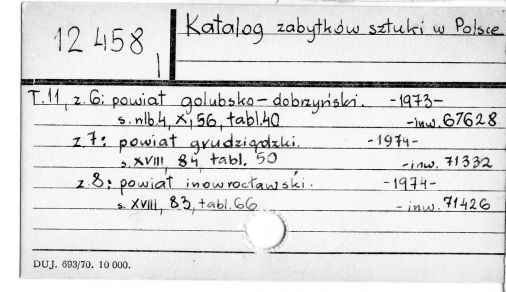 12 458
Katalog zabytków sztuki w Polsce
T.11, z.6: powiat golubsko-dobrzyński. -1973-
s.nlb.4, XI, 56, tabl.40 -inw.67628
z.7: powiat grudziądzki. -1974-
s.XVIII, 84, tabl. 50 -inw.71332
z.8: powiat inowrocławski. -1974-
s.XVIII, 83, tabl.66 -inw.71426
DUJ. 693/70. 10 000.